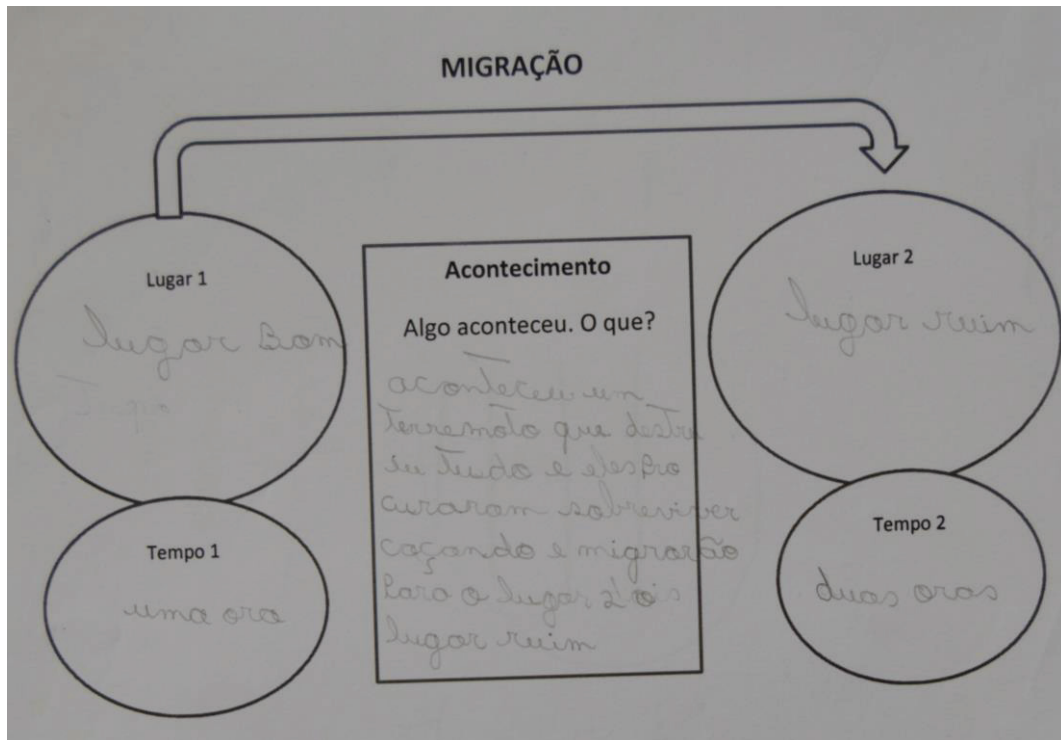 MIGRAÇÃO
Lugar 1
lugar Bom
Tempo 1
uma ora
Acontecimento
Algo aconteceu. O que?
aconteceu um
terremoto que destru
iu tudo e eles Pro
curaram sobreviver
caçando e migrarão
Para o lugar 2 o
lugar ruim
Lugar 2
lugar ruim
Tempo 2
duas oras